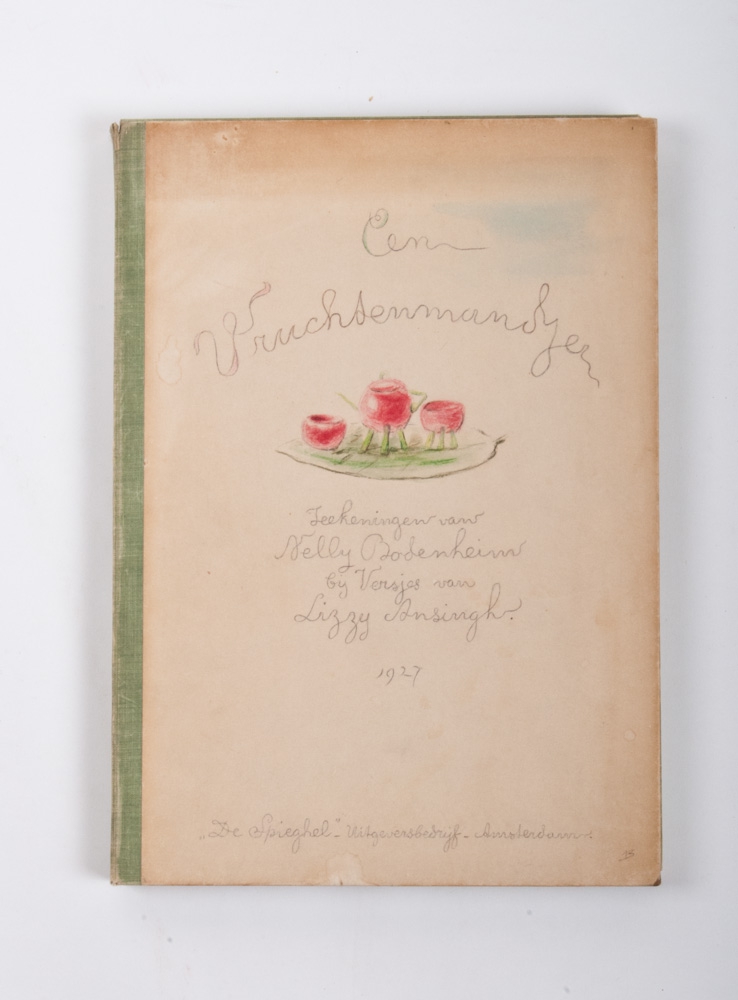 Een
Vruchtenmandjen
Teekeningen van
Nelly Bodenheim
by Versjes van
Lizzy Ansingh.
1927
„De Spieghel" - Uitgeversbedrijf - Amsterdam -.